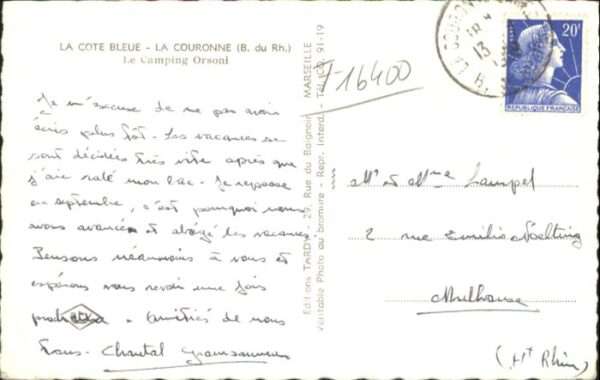 LA COTE BLEUE - LA COURONNE (B. du Rh.)
Le Camping Orsoni
Je m'excuse de ne pas avoir
écris plus tôt. Les vacances se
sont décidées très vite après que
j'aie raté mon bac. Je repasse
en septembre, c'est pourquoi nous
avons avancé et abrégé les vacances
Pensons néanmoins à vous et
espérons vous revoir une fois
prochaine. Amitiés de nous
tous. Chantal
Editions TARDY - 29, Rue du Baignoir - MARSEILLE
Véritable Photo au bromure - Repr. Interd. - Tél. 91-19
716400
LA COURONNE
13
20F
REPUBLIQUE FRANÇAISE
Mr et Mme Lampel
2 rue Emilio Noelting
Mulhouse
(Ht Rhin)